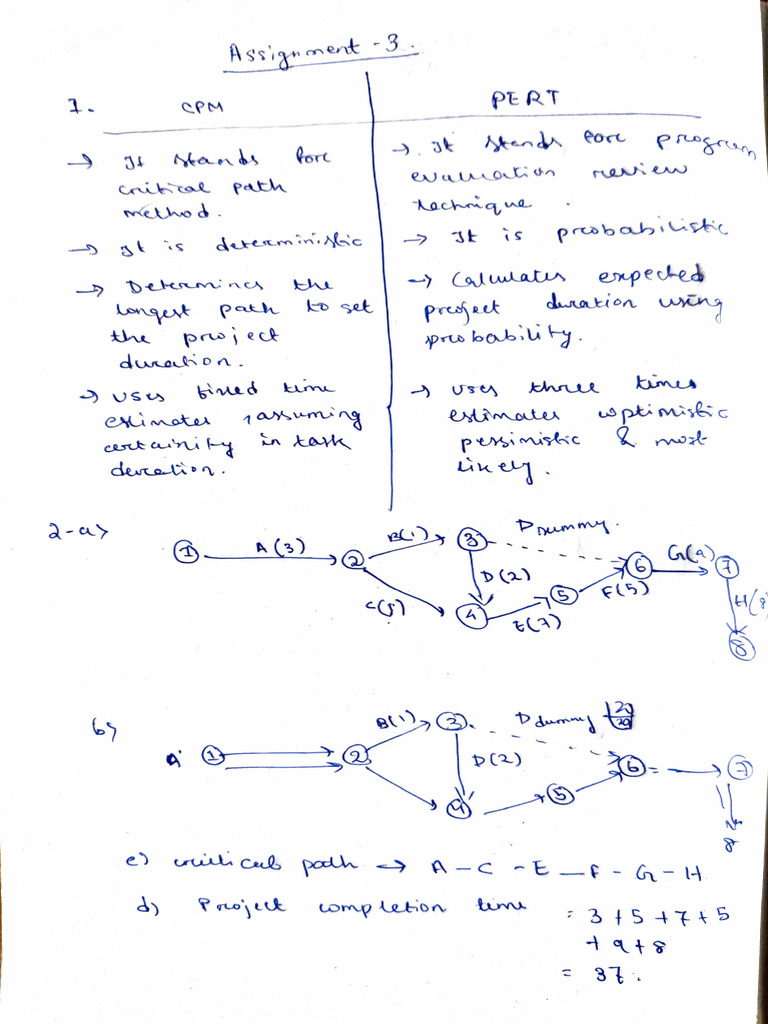 Assignment - 3.
1. CPM
PERT
→ It stands fore
critical path
method.
→ It is deterministic
→ Determines the
longest path to set
the project
duration.
→ uses fixed time
estimates, assuming
certainity in task
duration.
→ It stands fore program
evaluation review
technique.
→ It is probabilistic
→ Calculates expected
project duration using
probability.
→ uses three times
estimates optimistic
pessimistic & most
likely.
2-a>
1 A(3) 2 B(1) 3 Dummy.
C(5) D(2) 4 E(7) 5 F(5) 6 G(9) 7
H(8)
8
b>
A 1 2 B(1) 3 Ddummy
D(2) 4 5 6 7
8
c) critical path → A - C - E - F - G - H
d) Project completion time = 3 + 5 + 7 + 5
+ 9 + 8
= 37.